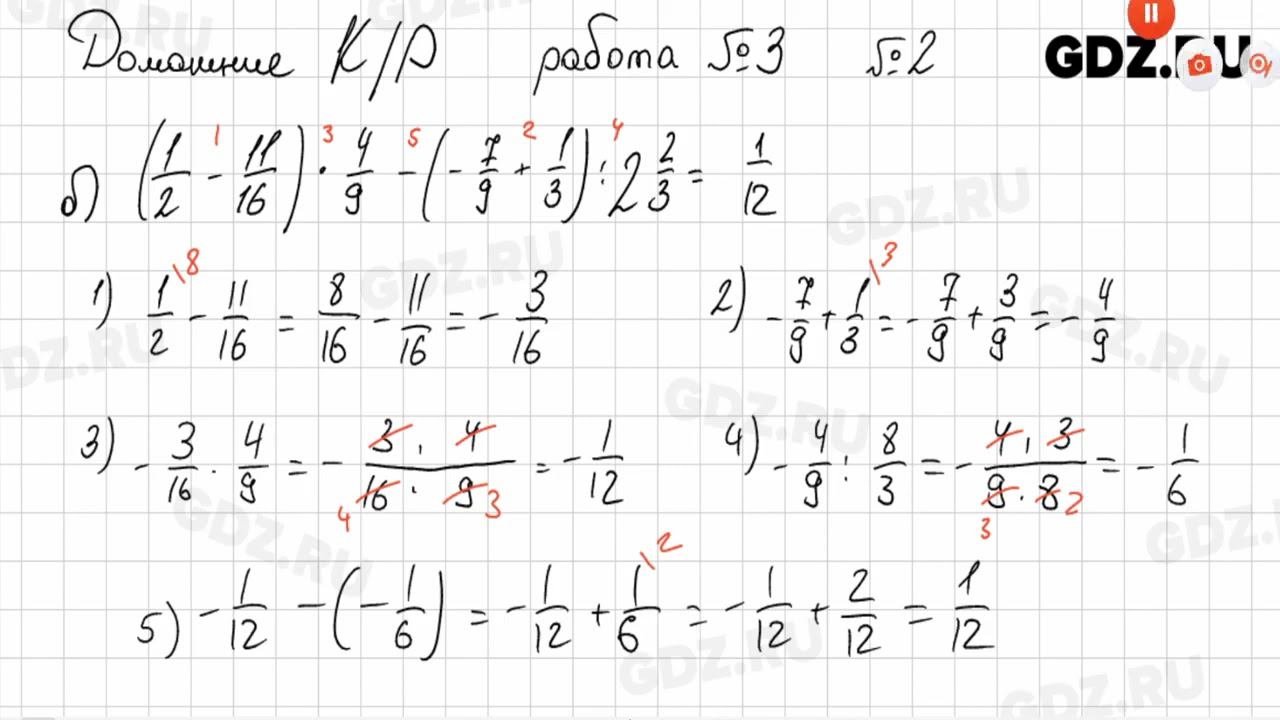 Домашние К/Р работа №3 №2
GDZ.RU
б) (1/2 - 11/16) · 4/9 - (-7/9 + 1/3) : 2 2/3 = 1/12
1 3 5 2 4
1) 1/2 \8 - 11/16 = 8/16 - 11/16 = - 3/16
2) - 7/9 + 1/3 \3 = - 7/9 + 3/9 = - 4/9
3) - 3/16 · 4/9 = - 3 · 4 / 16 · 9 = - 1/12
4 3
4) - 4/9 : 8/3 = - 4 · 3 / 9 · 8 = - 1/6
3 2
5) - 1/12 - (- 1/6) = - 1/12 + 1/6 \2 = - 1/12 + 2/12 = 1/12